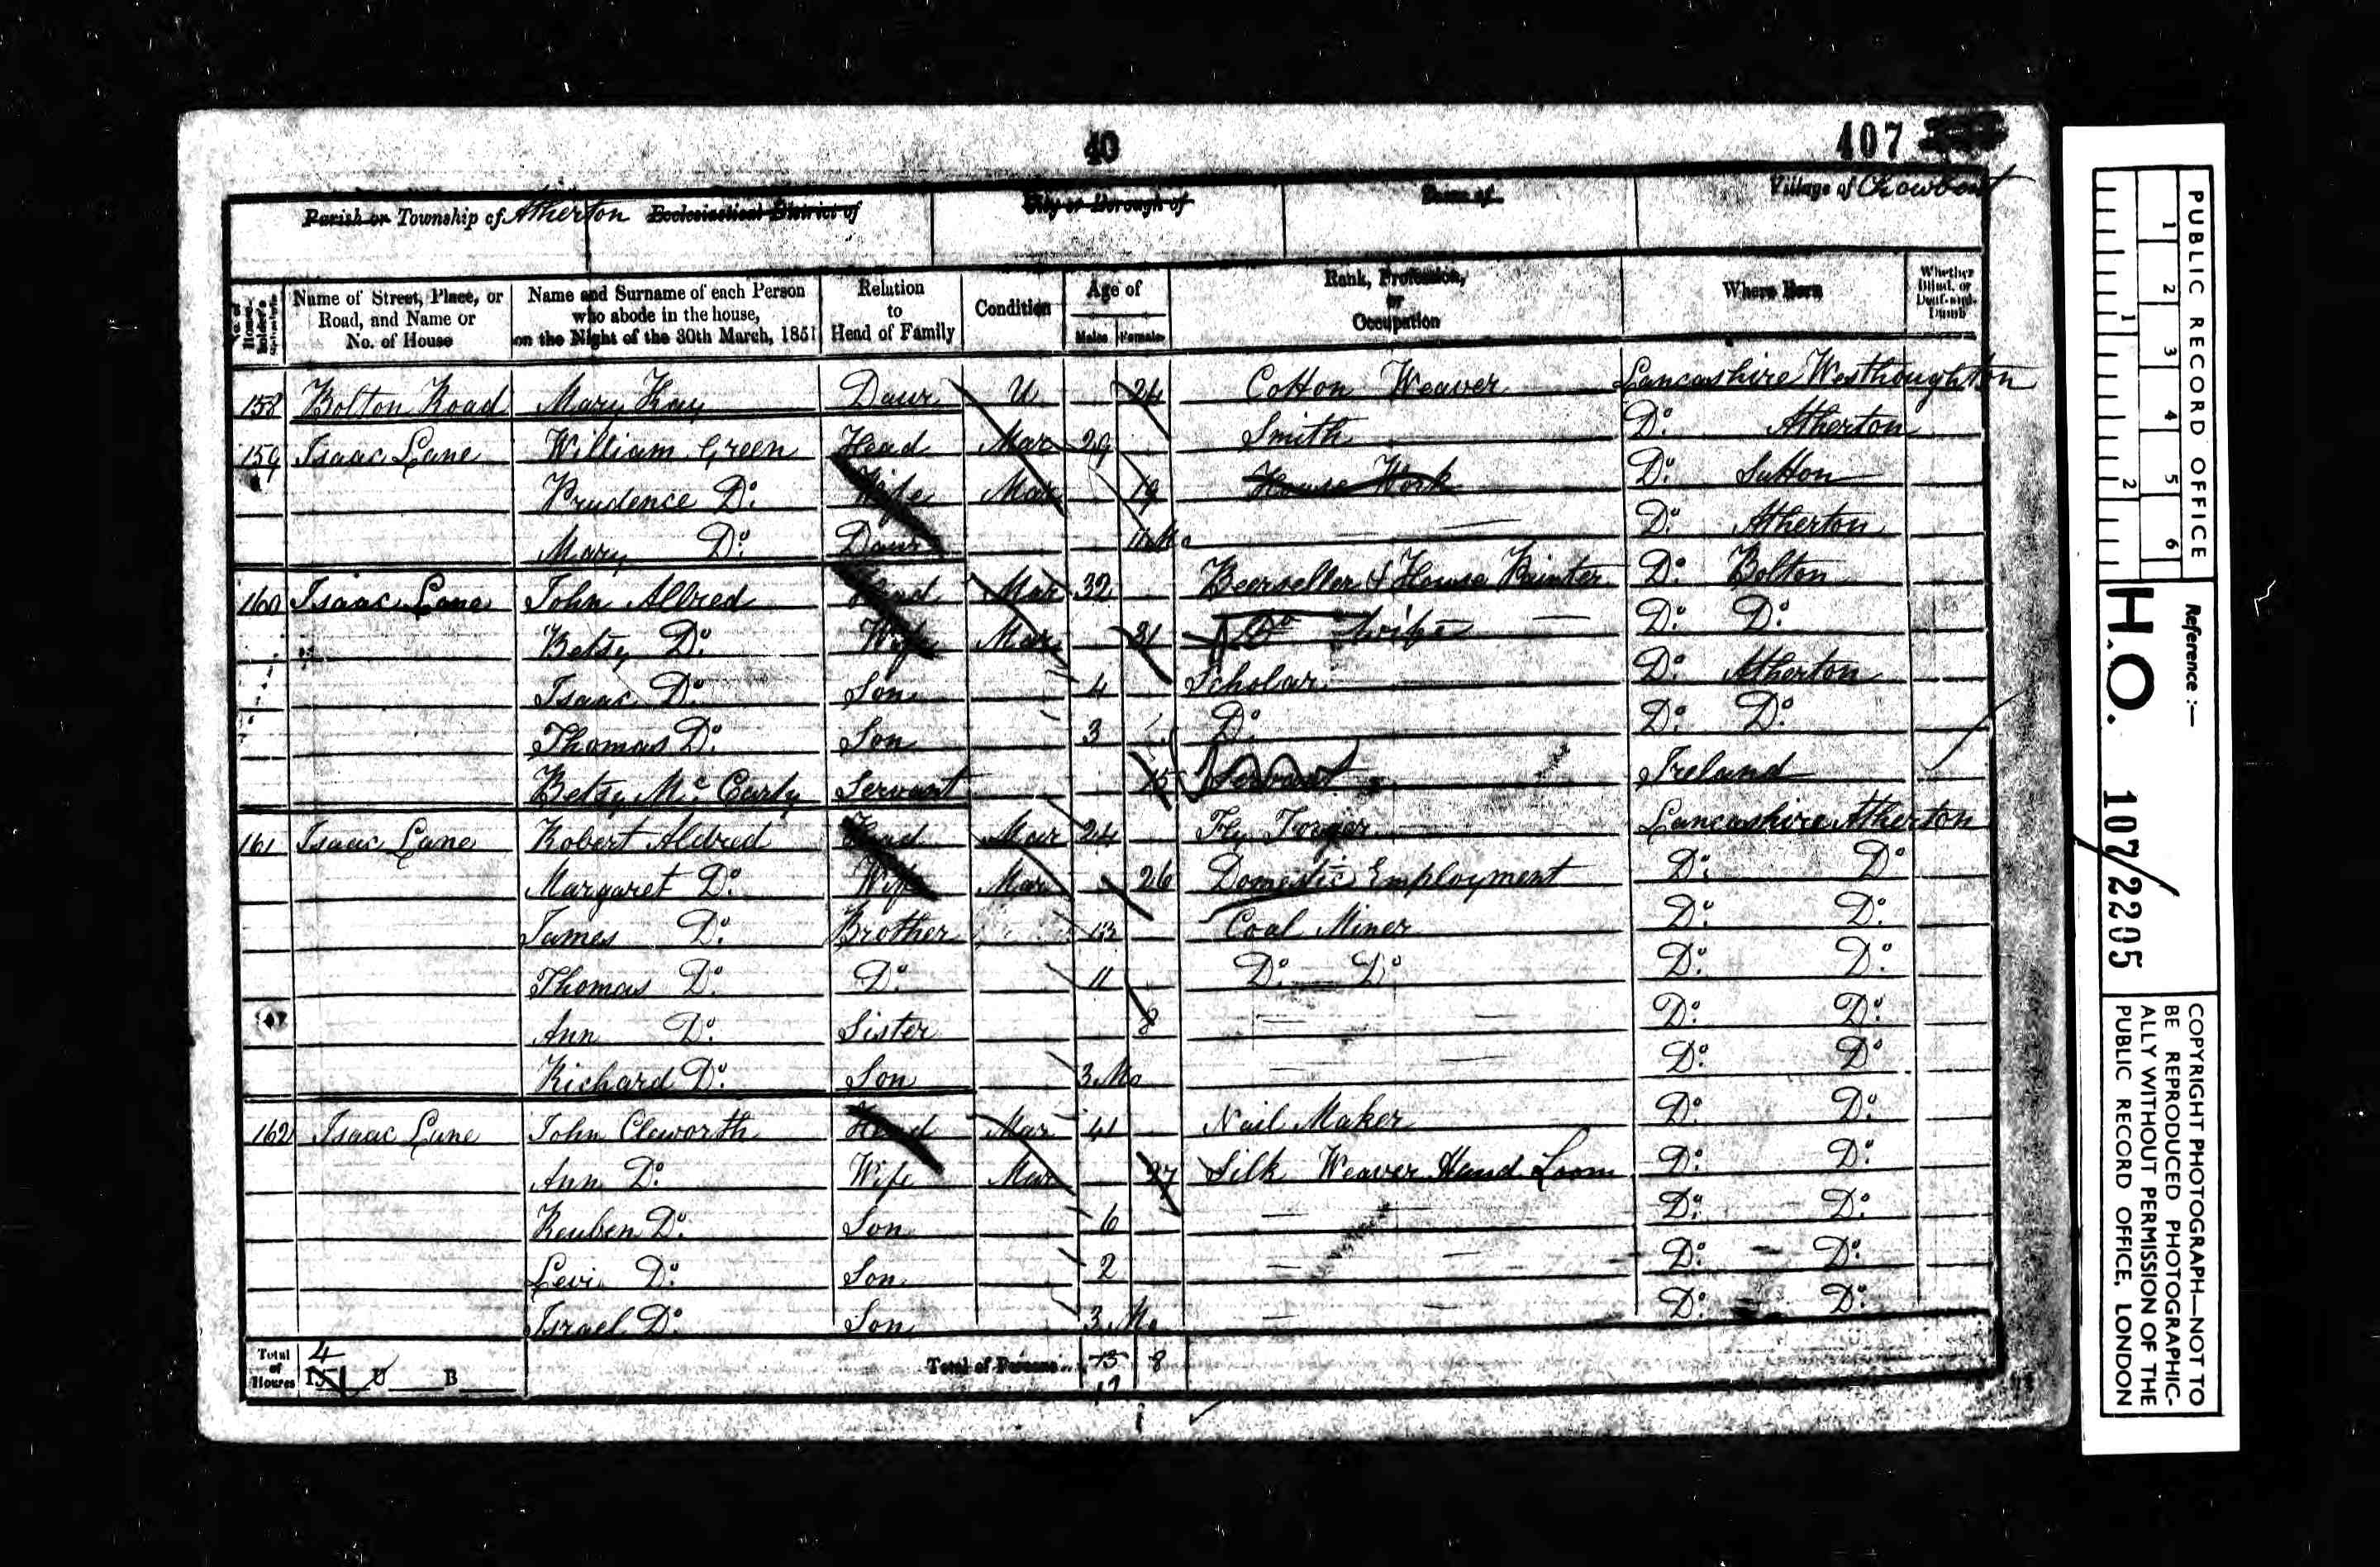 40
407
Parish or Township of Atherton Ecclesiastical District of City or Borough of Town of Village of Chowbent
No. of House-holder's Schedule
Name of Street, Place, or Road, and Name or No. of House
Name and Surname of each Person who abode in the house, on the Night of the 30th March, 1851
Relation to Head of Family
Condition
Age of
Males Females
Rank, Profession, or Occupation
Where Born
Whether Blind, or Deaf-and-Dumb
158 Bolton Road Mary Kay Daur U 24 Cotton Weaver Lancashire Westhoughton
159 Isaac Lane William Green Head Mar 29 Smith Do. Atherton
Prudence Do. Wife Mar 19 House Work Do. Sutton
Mary Do. Daur Mo Do. Atherton
160 Isaac Lane John Aldred Head Mar 32 Beerseller & House Painter Do. Bolton
Betsy Do. Wife Mar 31 Do wife Do. Do.
Isaac Do. Son 4 Scholar Do. Atherton
Thomas Do. Son 3 Do. Do. Do.
Betsy Mc Carty Servant 15 Servant Ireland
161 Isaac Lane Robert Aldred Head Mar 24 Fly Forger Lancashire Atherton
Margaret Do. Wife Mar 26 Domestic Employment Do. Do
James Do. Brother 13 Coal Miner Do. Do.
Thomas Do. Do. 11 Do. Do Do. Do.
Ann Do. Sister 8 Do. Do.
Richard Do. Son 3 Mo Do. Do
162 Isaac Lane John Cleworth Head Mar 41 Nail Maker Do. Do.
Ann Do. Wife Mar 37 Silk Weaver Hand Loom Do. Do.
Reuben Do. Son 6 Do. Do.
Levi Do. Son 2 Do. Do.
Israel Do. Son 3 Mo Do. Do.
Total of Houses 4 I U B Total of Persons 8
12
PUBLIC RECORD OFFICE
1 2 3 4 5 6
1 2
Reference :—
H.O. 107/2205
COPYRIGHT PHOTOGRAPH—NOT TO
BE REPRODUCED PHOTOGRAPHIC-
ALLY WITHOUT PERMISSION OF THE
PUBLIC RECORD OFFICE, LONDON